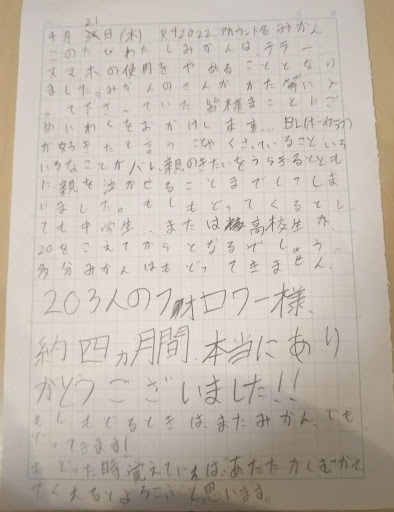 4月21日(木) R4 2022. アカウント名みかん
このたびわたしみかんは、テラー、
スマホの使用をやめることとなり
ました。みかんのさんかかた に入
って下さっていた皆様まことにご
めいわくをおかけします… BL(ボーイズラブ)
が好きだと言うことやくさっていること、いろ
いろなことがバレ、親のきたいをうらぎるととも
に親を泣かせることまでしてしま
いました。もしもどってくるとし
ても中学生…または高校生か、
20をこえてからとなるでしょう…
多分みかんはもどってきません。
203人のフォロワー様、
約四ヵ月間、本当にあり
がとうございました!!
もしもどるときは、またみかん、でも
どってきます!
もどった時覚えていれば、あたたかくむかえ
てくれるとよろこぶと思います。